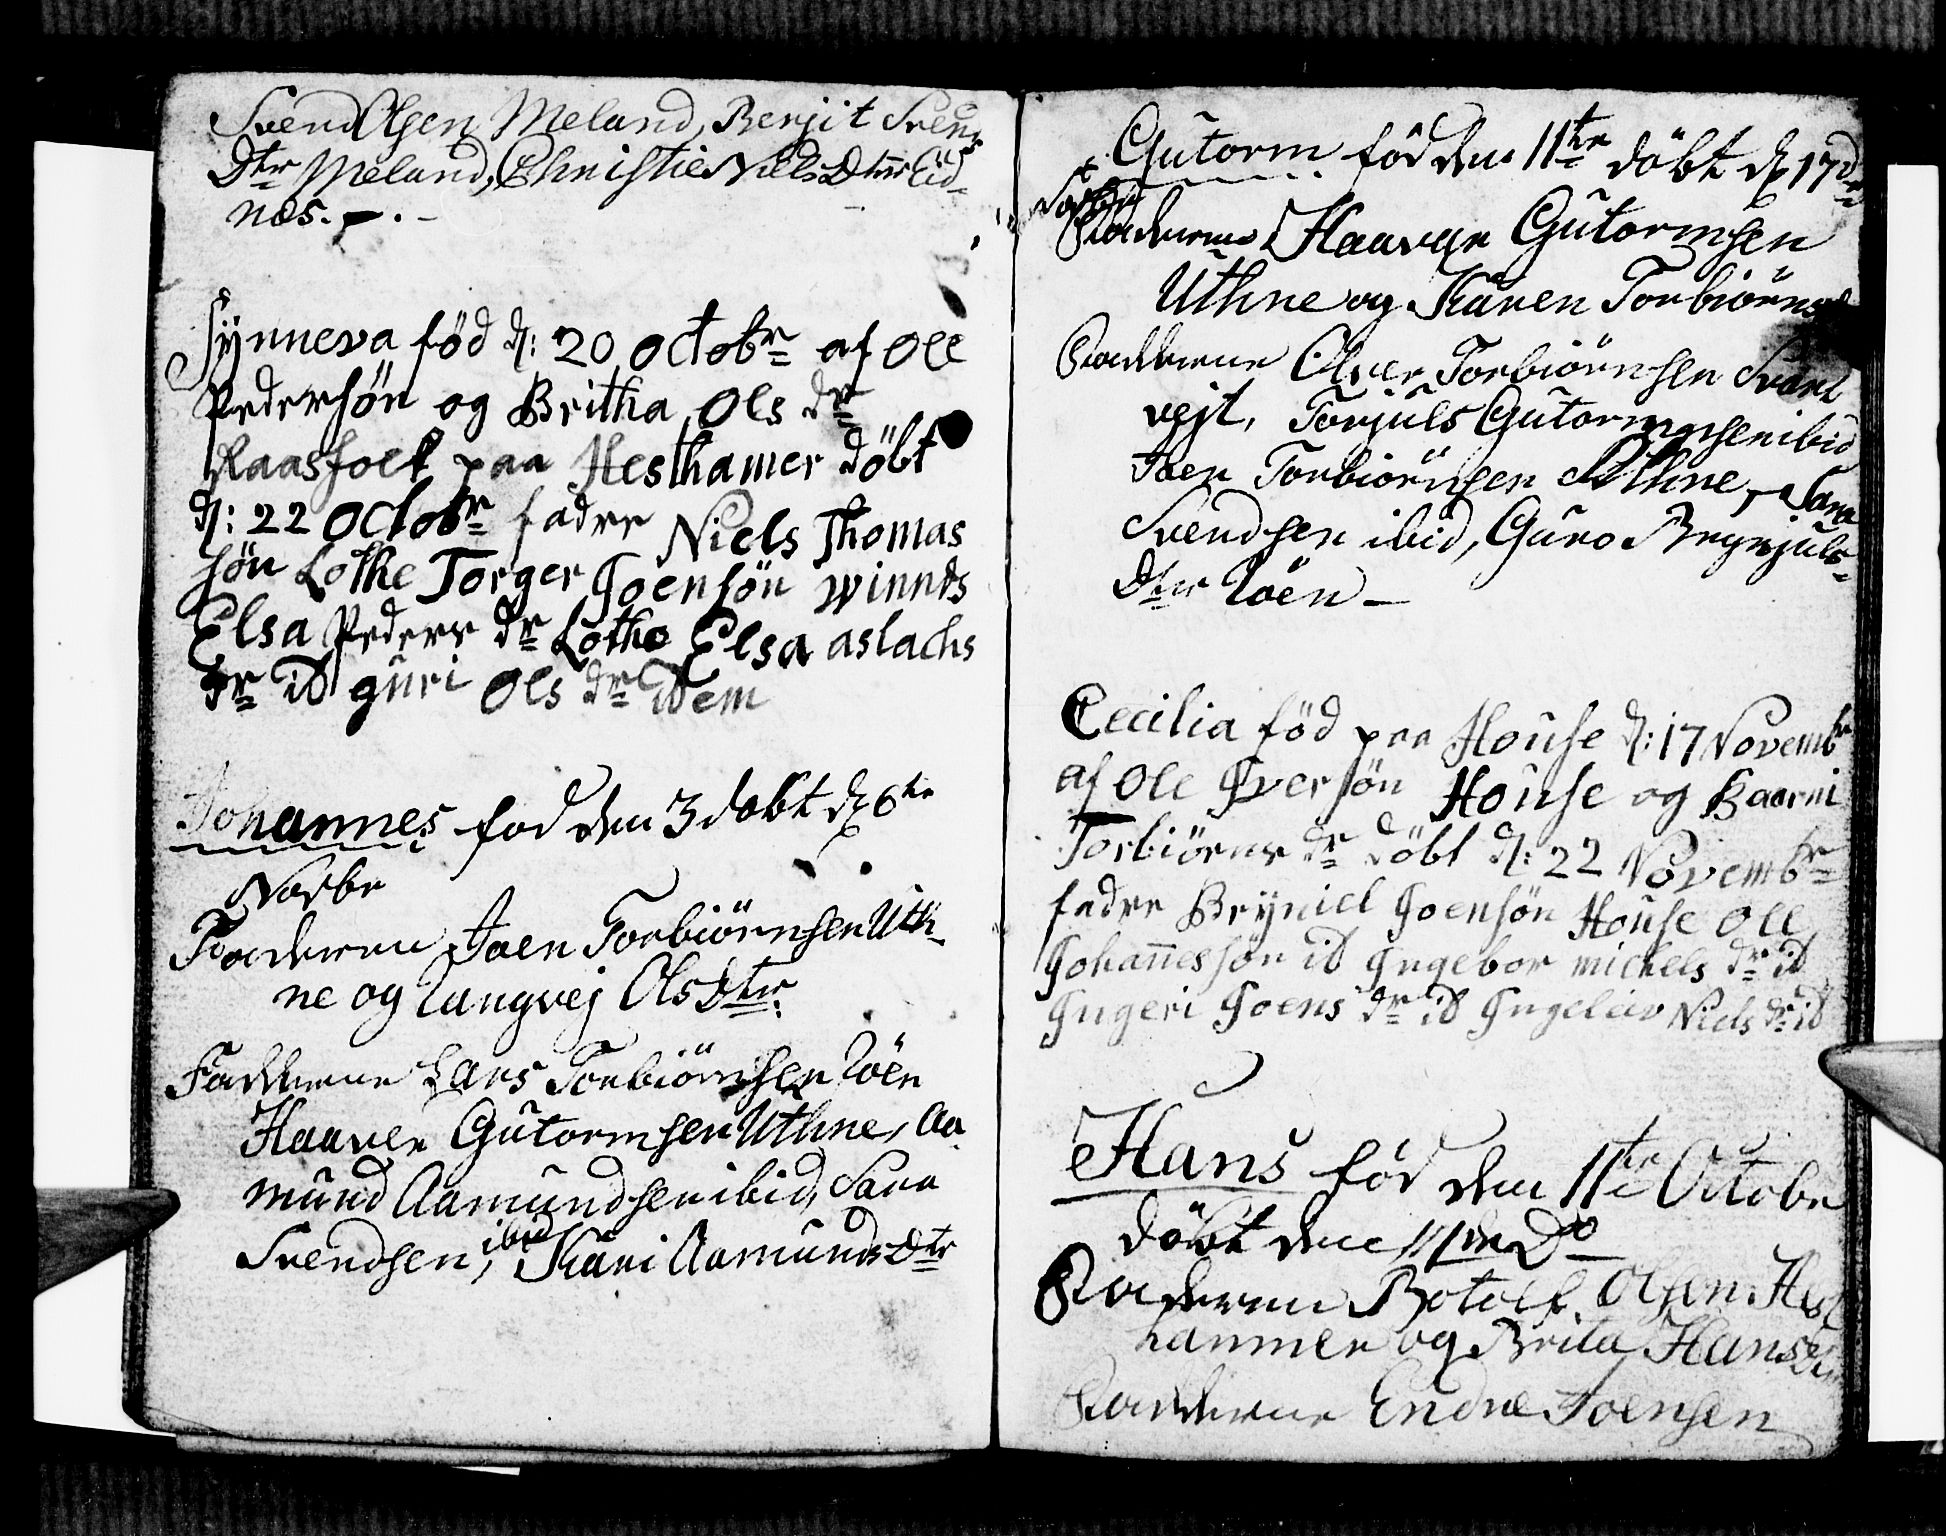 Svend Olsen Meland, Berjit Svens
Dtr Meland, Christie Niels Dttr Eid-
næs. -. -
Synneva fød d: 20 octobr af Ole
Pedersøn og Britha Ols dr
Raasfolk paa Hesthamer døbt
d: 22 Octobr fadre Niels Thomas
søn Lothe Torger Joensøn Winnes
Elsa Peders dr Lothe Elsa aslachs
dr id guri Ols dr idem
Johannes fød den 3 døbt d 6te
Novbr
Foreldrene Joen Torbiörnsen Uth-
ne og Rangvej Ols Dttr.
Fadderne Lars Torbiörnsen Röen
Haaver Gutormsen Uthne, Aa
mund Aamundsen ibid, Sara
Svendsen, ibid Kari Aamunds Dtr
Gutorm fød den 11te döbt d 17de
Novbr
Haaver Gutormsen
Uthne og Karen Torbiörns
Fadderne Olver Torbiörnsen Svart
vejt, Torjuls Gutormsen ibid
Joen Torbiörnsen Uthne, Sara
Svendsen ibid, Guro Brynjuls-
Dttr Röen -
Cecilia fød paa House d: 17 Novembr
af Ole Iversøn House og Baarni
Torbiørns dr døbt d: 22 Novembr
fadre Bryniel Joensøn House Ole
Johannessøn id Ingebor michels dr id
Ingeri Joens dr id Ingeleiv Niels dr id
Hans fød den 11te Octobr
döbt den 11de Do
Botolf Olsen Hest
hammer og Brita Hans
Fadderne Endre Joensen